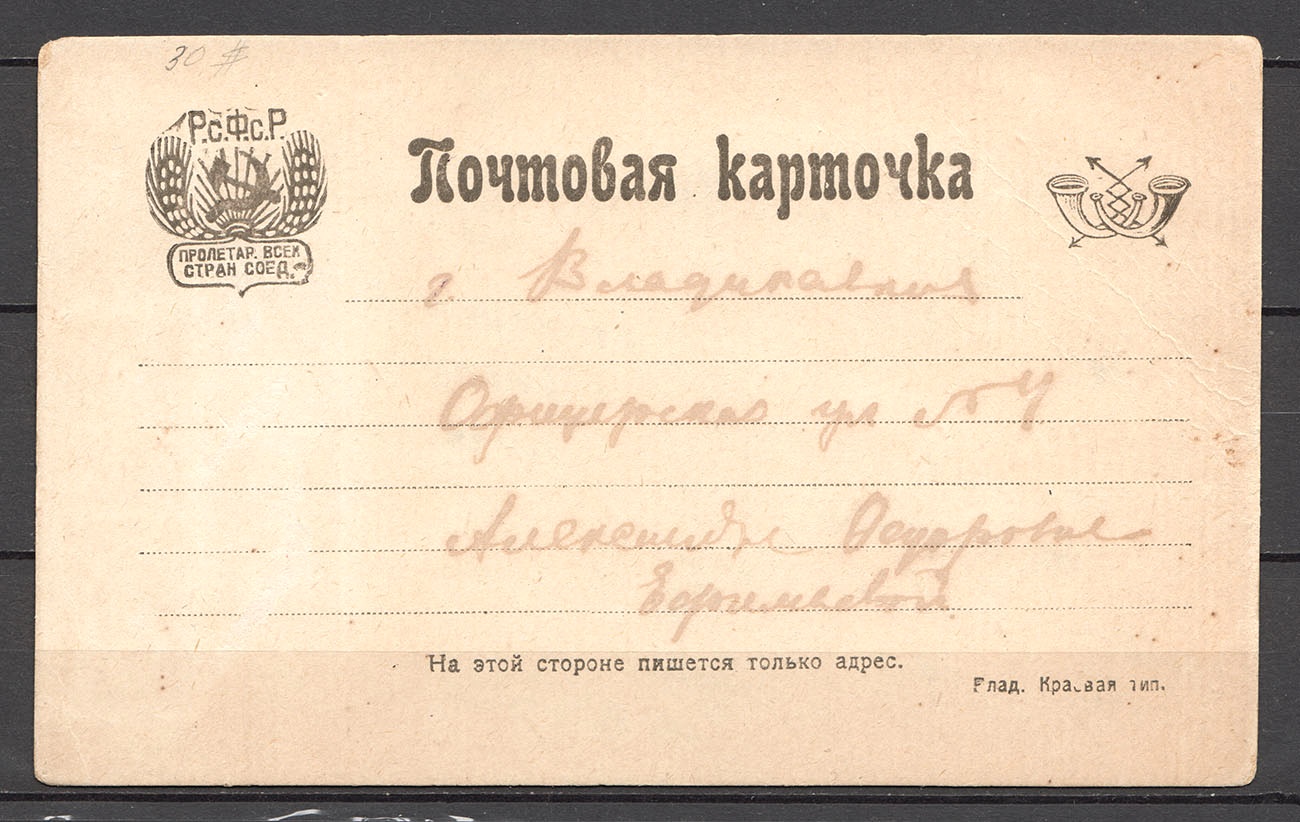 30 #
Р.С.Ф.С.Р.
ПРОЛЕТАР. ВСЕХ
СТРАН СОЕД.
Почтовая карточка
г. Владикавказ
Офицерская ул № 4
Александре
Ефримьевой
На этой стороне пишется только адрес.
Влад. Краевая тип.